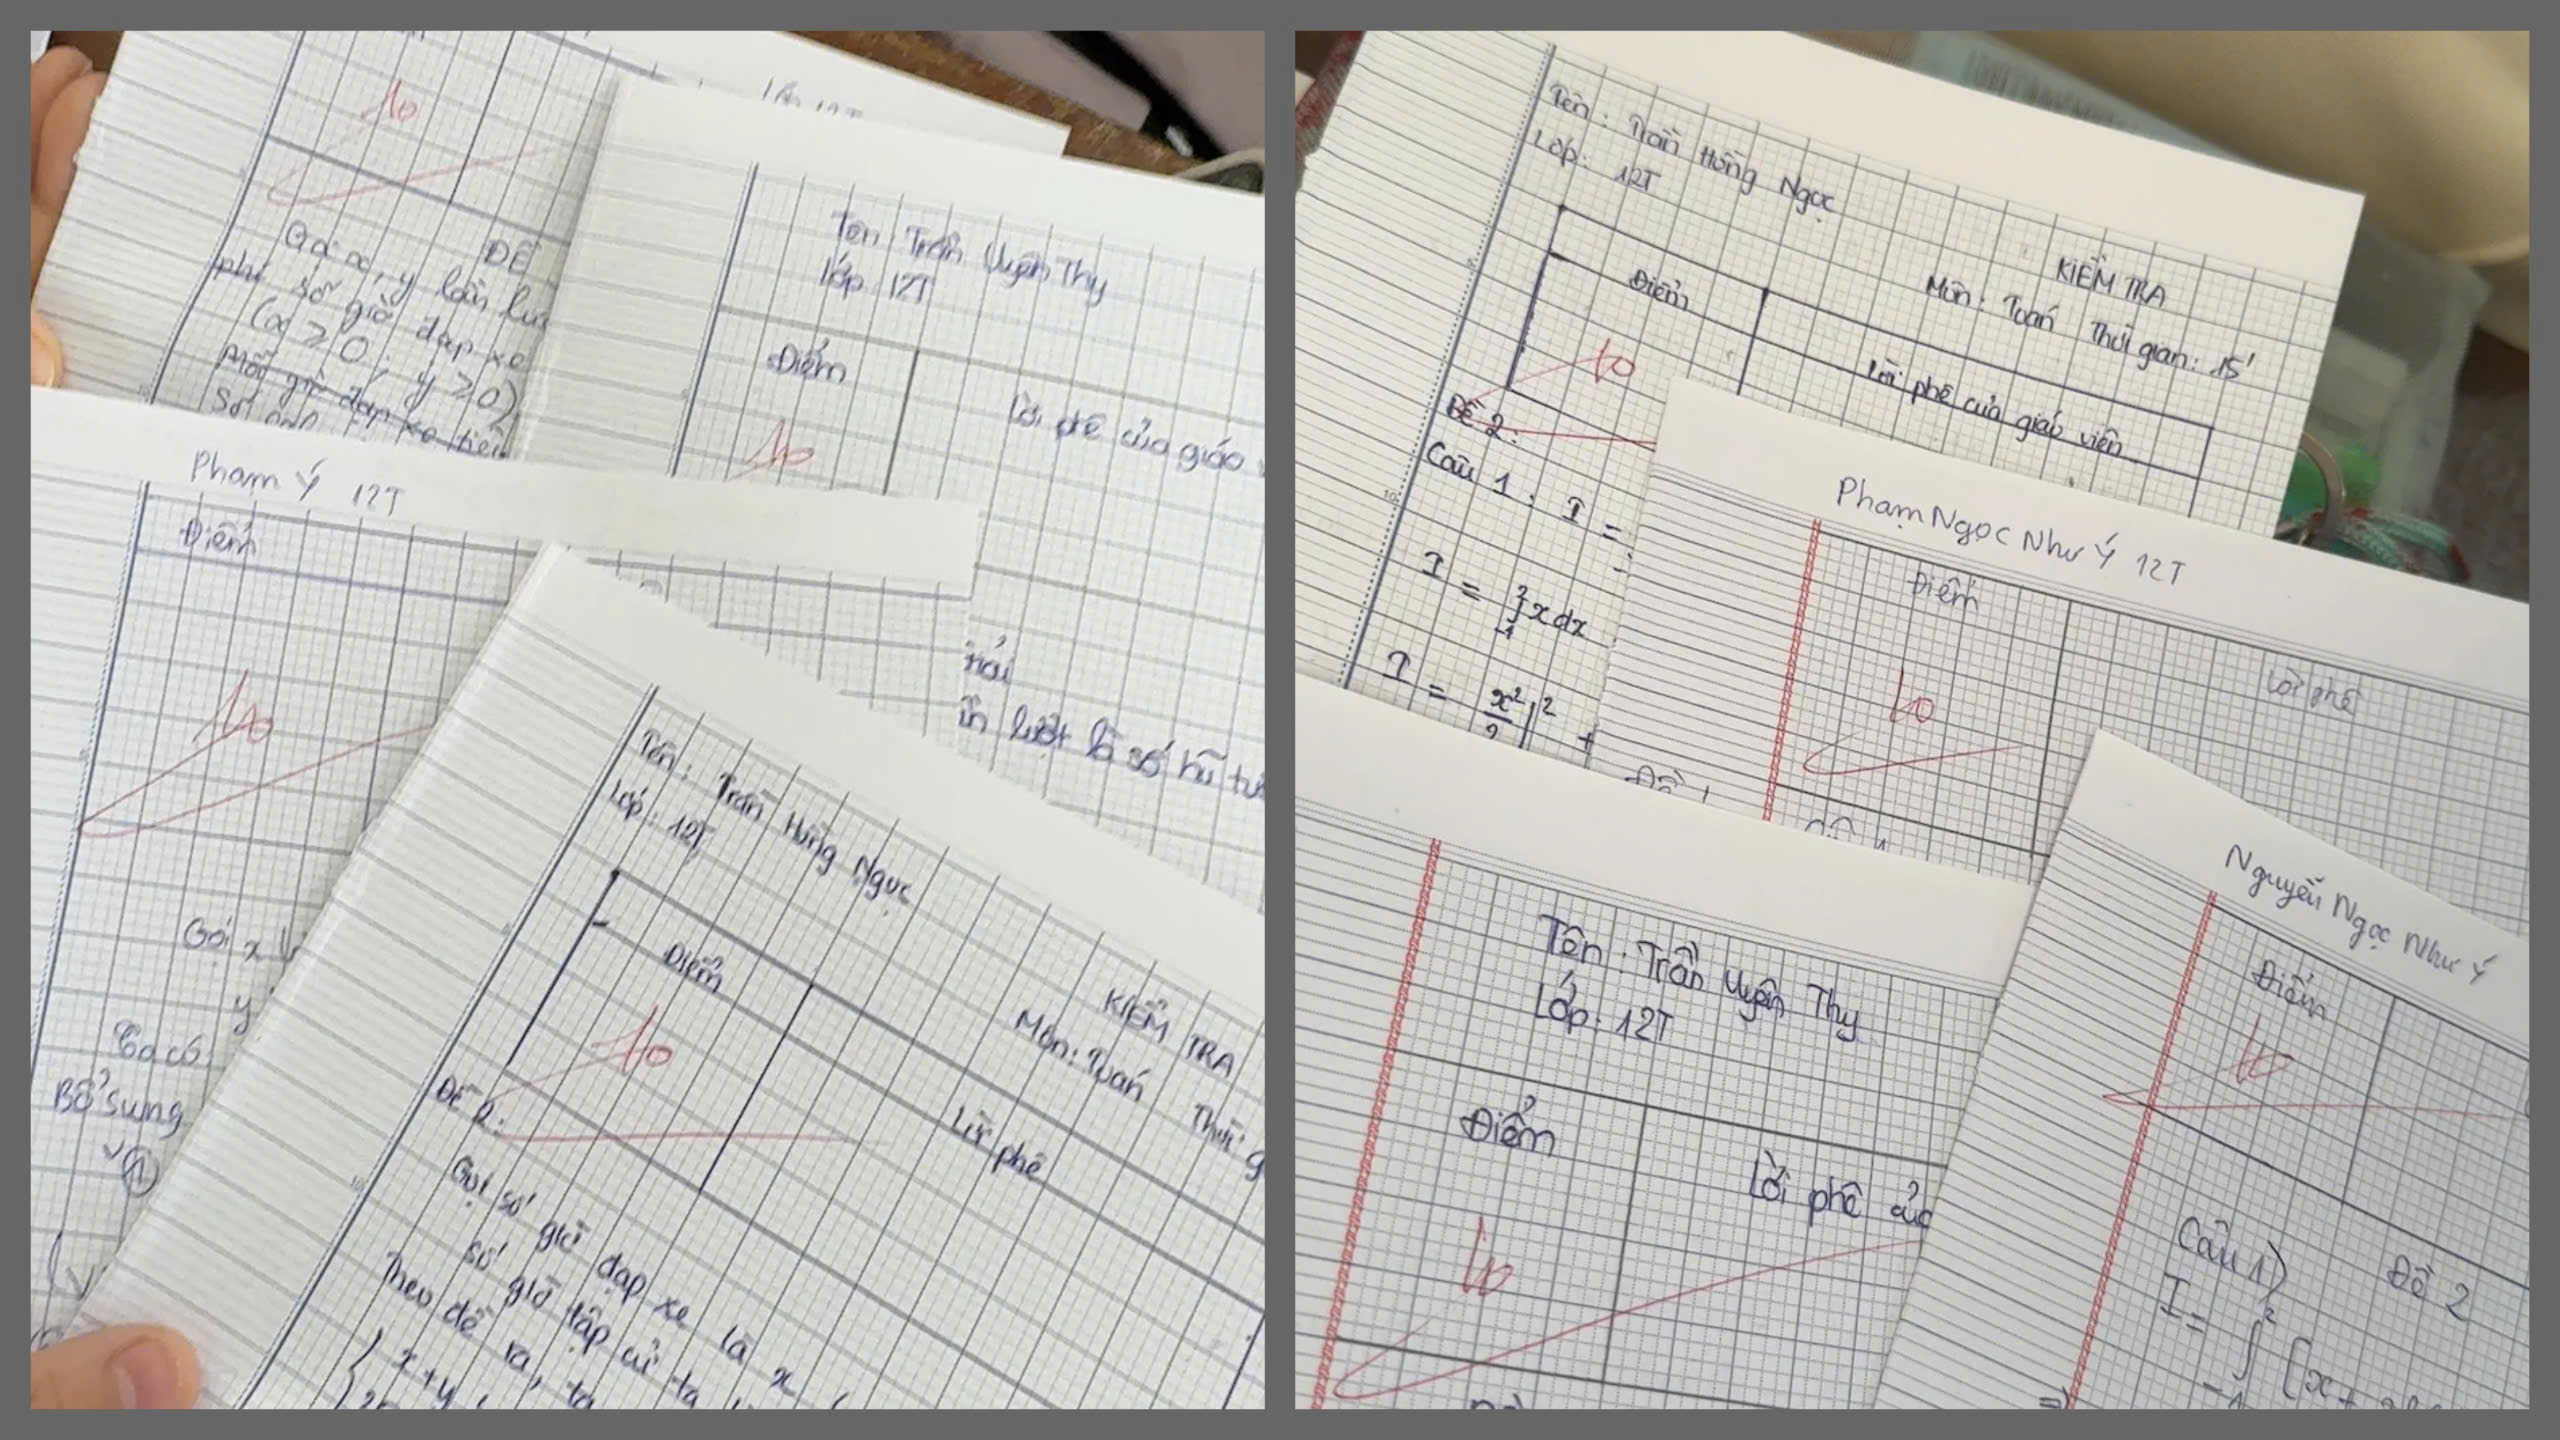 10
ĐỀ
Gọi x, y lần lượt
phí số giờ đạp xe
(x ≥ 0; y ≥ 0)
Mỗi giờ đạp xe tiêu
Tên: Trần Uyên Thy
Lớp: 12T
Điểm
Lời phê của giáo
10
Phạm Ý 12T
Điểm
10
Gọi x
y
Ta có
Bổ sung
lần lượt là số
Tên: Trần Hồng Ngọc
Lớp: 12T
KIỂM TRA
Môn: Toán Thời g
Điểm
Lời phê
10
Đề 2:
Gọi số giờ đạp xe là x
số giờ tập cử tạ
Theo đề ra, ta
x + y
Tên: Trần Hồng Ngọc
Lớp: 12T
KIỂM TRA
Môn: Toán Thời gian: 15'
Điểm
Lời phê của giáo viên
10
Đề 2:
Câu 1: I =
I = ∫ x dx
2
-1
I = x²/2 |² +
Phạm Ngọc Như Ý 12T
Điểm
Lời phê
10
Đề 1
Tên: Trần Uyên Thy
Lớp: 12T
Điểm
Lời phê của
10
Nguyễn Ngọc Như Ý
Điểm
10
Đề 2
Câu 1)
I = ∫ [x +
2
-1